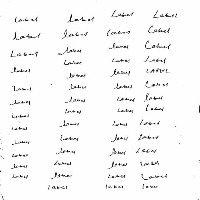 Label Label Label Label
Label label Label Label
Label label label Label
label Label Label Label
label label LABEL
Label label label Label
label label label label
label label label label
label label label label
label Label label label
label label label Label
label Label label Label
label label Label Label
Label Label Label